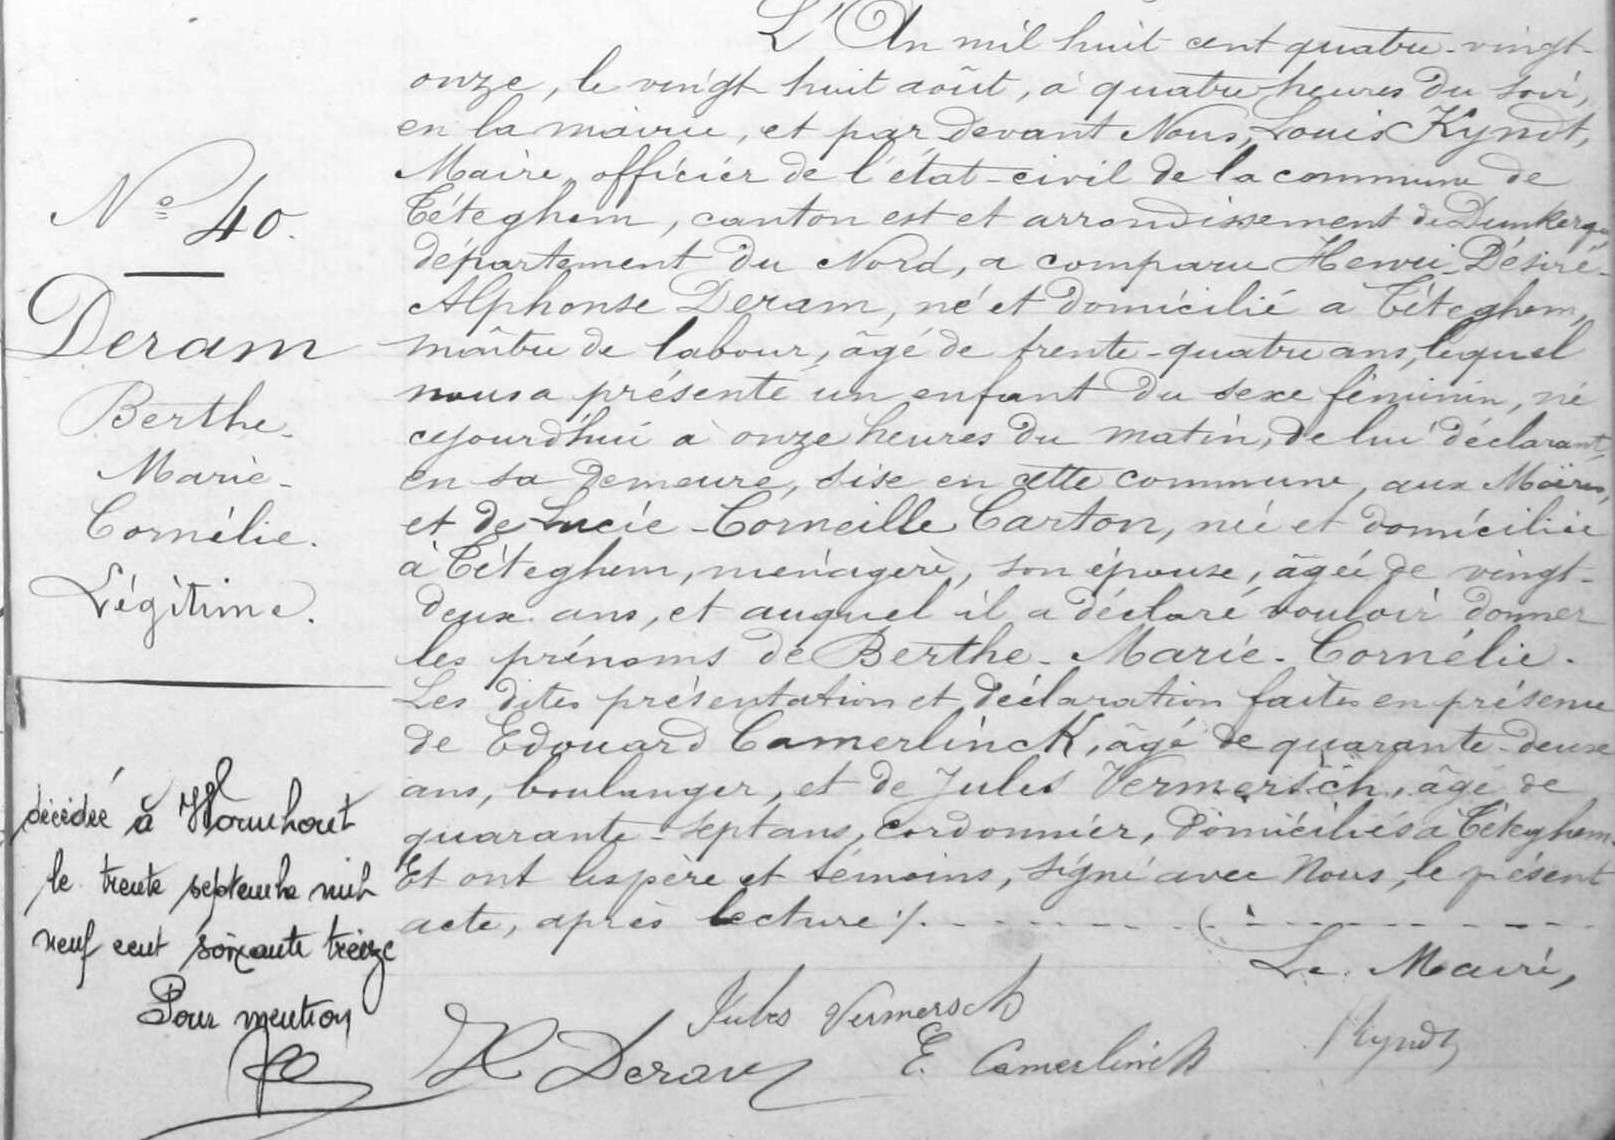 N° 40.
Deram
Berthe-
Marie-
Cornélie.
Légitime.
décédée à
le trente septembre mil
neuf cent soixante treize
Pour mention
L'An mil huit cent quatre-vingt-
onze, le vingt huit août, à quatre heures du soir,
en la mairie, et par devant Nous, Louis Kyndt,
Maire, officier de l'état-civil de la commune de
Téteghem, canton est et arrondissement de Dunkerque
département du Nord, a comparu Henri-Désiré-
Alphonse Deram, né et domicilié a Téteghem,
maître de labour, âgé de trente-quatre ans, lequel
nous a présenté un enfant du sexe féminin, né
cejourd'hui à onze heures du matin, de lui déclarant,
en sa demeure, sise en cette commune, aux Moëres,
et de Lucie-Corneille Carton, née et domiciliée
à Téteghem, ménagère, son épouse, âgée de vingt-
deux ans, et auquel il a déclaré vouloir donner
les prénoms de Berthe-Marie-Cornélie.
Les dites présentation et déclaration faites en présence
de Edouard Camerlinck, âgé de quarante-deux
ans, boulanger, et de Jules Vermersch, âgé de
quarante-sept ans, cordonnier, domiciliés à Téteghem.
Et ont les père et témoins, signé avec Nous, le présent
acte, après lecture ./.
Le Maire,
Jules Vermersch
H Deram E. Camerlinck Kyndt